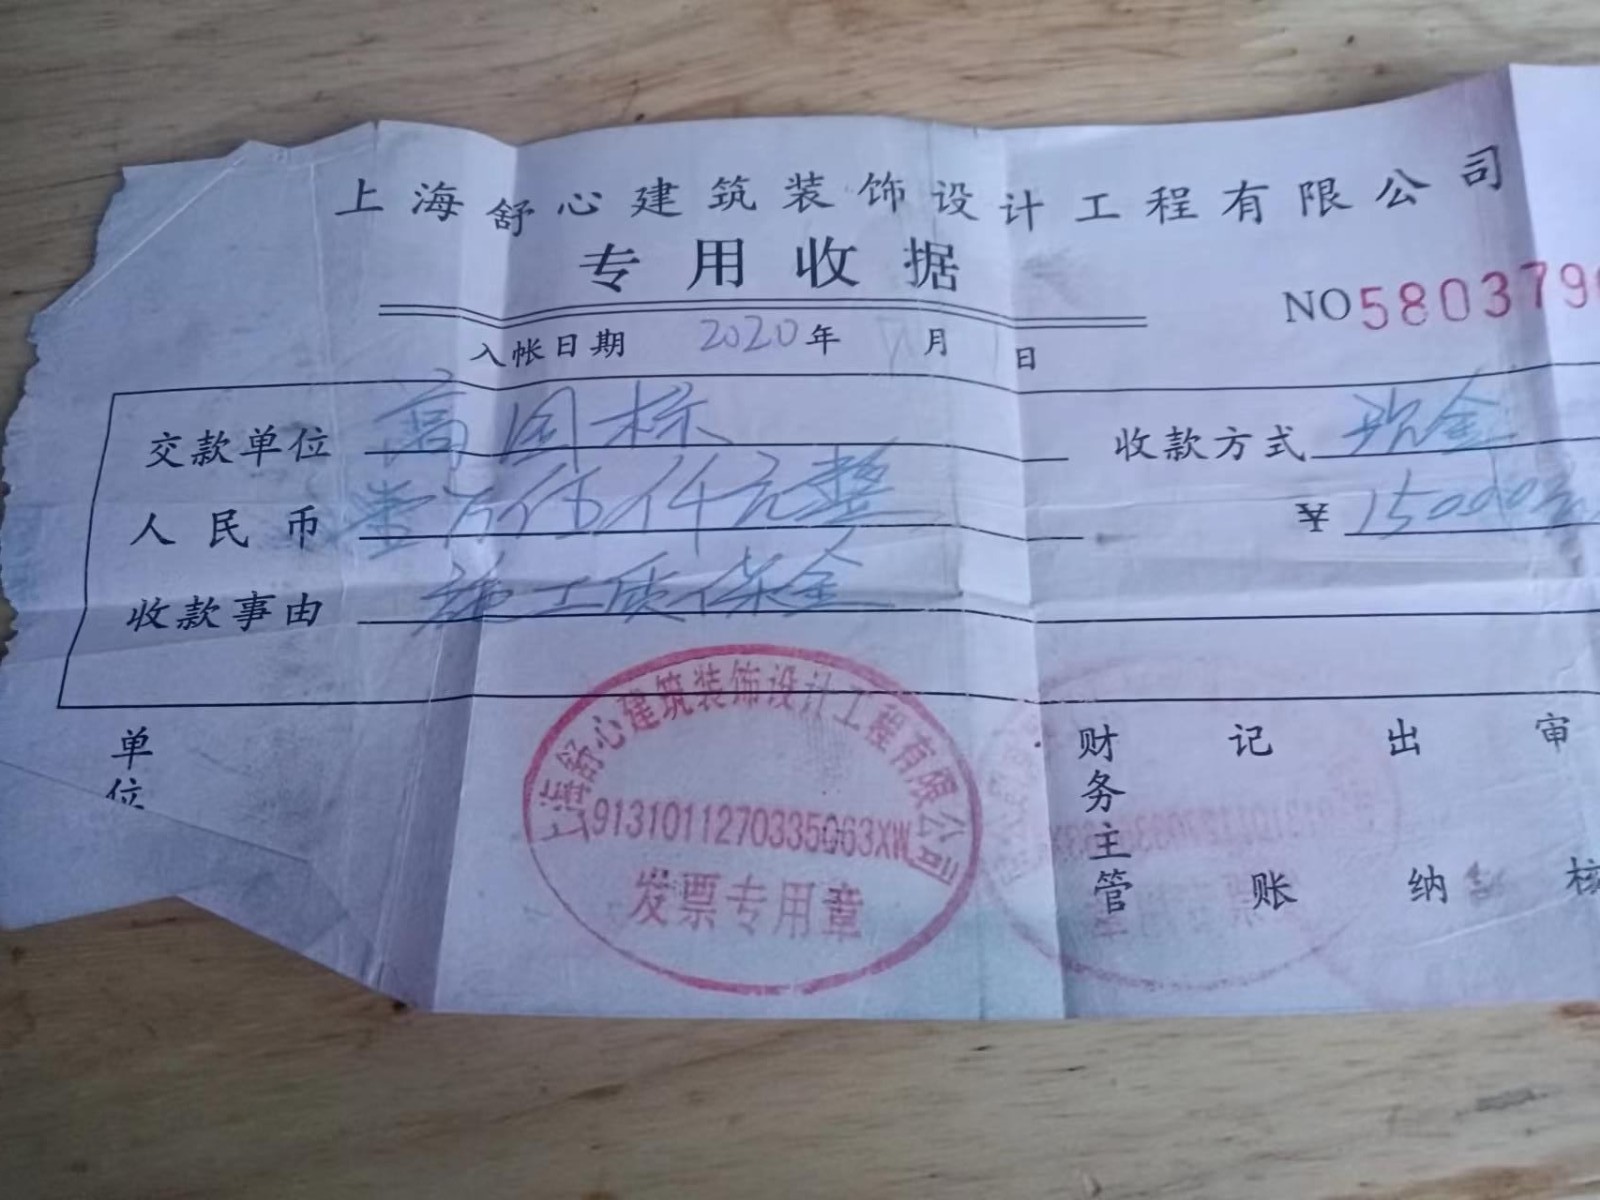 上海舒心建筑装饰设计工程有限公司
专用收据
NO 580379
入帐日期 2020年 月 日
交款单位 高国标 收款方式 现金
人民币 壹万伍仟元整 ¥ 15000元
收款事由 施工质保金
上海舒心建筑装饰设计工程有限公司
9131011270335063XW
发票专用章
单位 财务主管 记账 出纳 审核